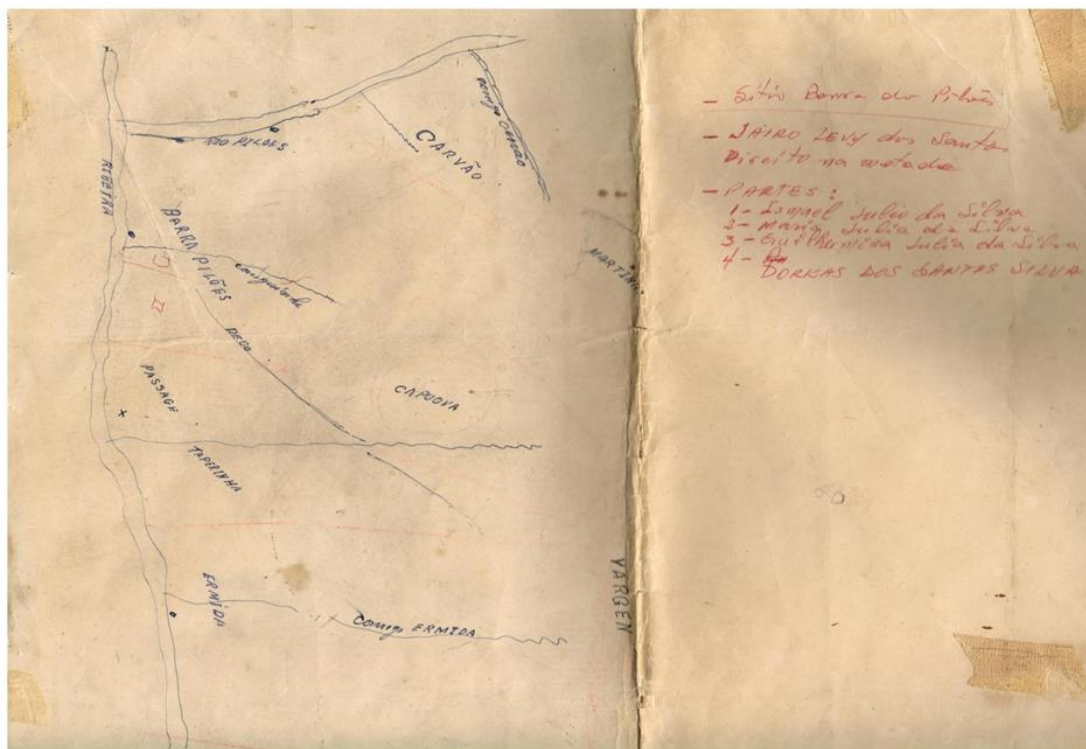 Corrego CARVÃO
RIO PILÕES
CARVÃO
RIBEIRA
BARRA PILÕES
MARTINS
PEDO
PASSAGE
CAPUOVA
TAPERINHA
ERMIDA
Corrego ERMIDA
VARGEN
- Sitio Barra do Pilões
- JAIRO LEVY dos Santos
Direito na metade
- PARTES:
1- Ismael Julio da Silva
2- Maria Julia da Silva
3- Guilhermina Julia da Silva
4-
DORKAS DOS SANTOS SILVA